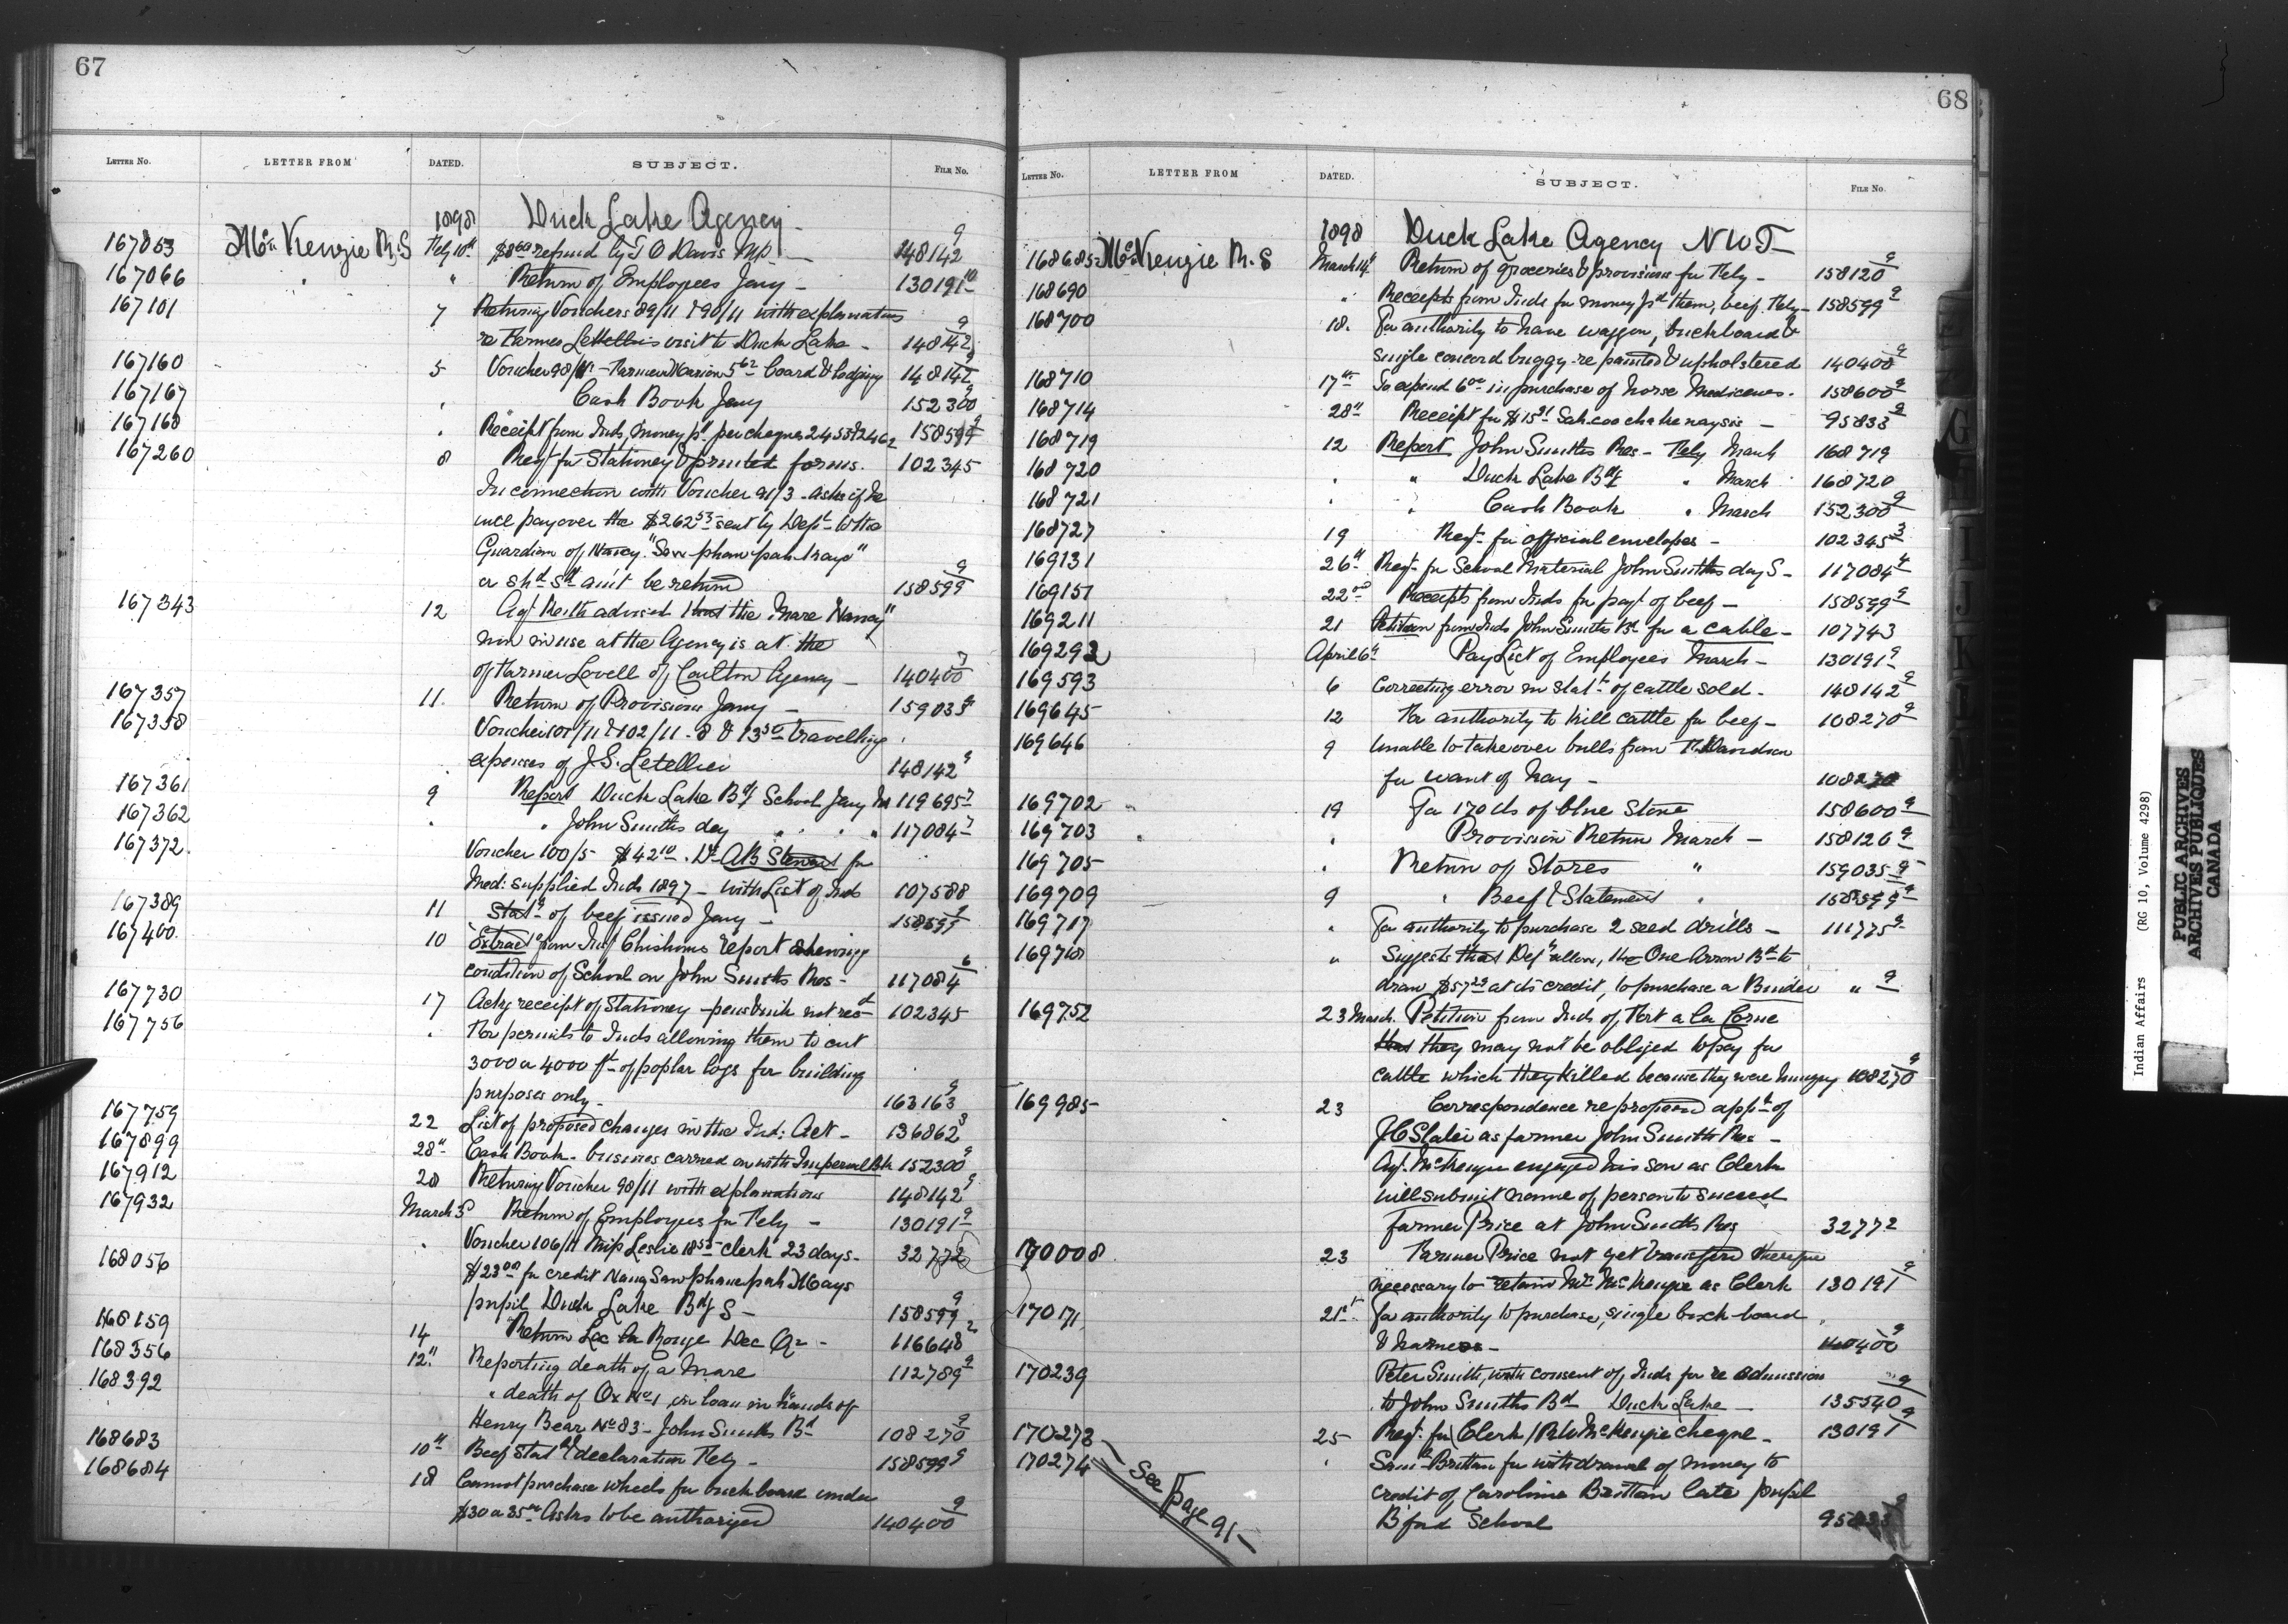 67
LETTER No. LETTER FROM DATED. SUBJECT. FILE No.
1898 Duck Lake Agency -
167053 McKenzie R.S Feby 10th $8.60 refund by T O Davis MP. — 148142 9
167066 " " Return of Employees Jany - 130191 10
167101 7 Returning Vouchers 89/11 & 90/11 with explanations
re Farmer Letellier's visit to Duck Lake - 148142 9
167160 5 Voucher 98/11 - Farmer Marion 5 62 board & lodging 148142 9
167167 " Cash Book Jany 152300 9
167168 " Receipt from Inds, money pd per cheques 2453 & 2462 158599 9
167260 8 Reqt for Stationery & printed forms. 102345
In connection with Voucher 91/3 - asks if he
will pay over the $262 53 sent by Dept to the
Guardian of Nancy "
or shd sd amt be returnd 158599 9
167343 12 Agt Keith advised that the Mare "Nancy"
now in use at the Agency is at the
of Farmer Lovell of Carlton Agency - 140400 7
167357 11. Return of Provisions Jany - 159035 9
167358 Vouchers 101/11 & 102/11 - 8 & 13 50 travelling
expenses of J.S. Letellier 148142 9
167361 9 Report Duck Lake Bdg School Jany 119695 7
167362 " " John Smiths day " " " 117084 7
167372. Voucher 100/5 $42 10. Dr AB Stewart for
Med: supplied Inds 1897 - with List of Inds 107588
167389 11 Statt of beef issued Jany - 158599 9
167400. 10 Extract from Insp Chisholms report shewing
condition of School on John Smiths Res - 117084 6
167730 17 Ackg receipt of Stationery - pens & ink not recd 102345
167756 " For permits to Inds allowing them to cut
3000 or 4000 ft of poplar logs for building
purposes only - 163163 9
167759 22 List of proposed changes in the Ind: Act - 136862 3
167899 28" Cash Book - business carried on with Imperial Bk 152300 9
167912 28 Returning Voucher 90/11 with explanations 148142 9
167932 March 5 Return of Employees for Feby - 130191 9
" Voucher 106/11 Leslie 18 55 clerk 23 days - 32772
168056 $23 00 for credit
pupil Duck Lake Bdg S - 158599 9
168159 14 Return Lac La Ronge Dec Qr - 116648 2
168356 12" Reporting death of a Mare 112789 9
168392 " death of Ox No 1, on loan in hands of
Henry Bear No 83 - John Smiths Bd 108270 9
168683 10" Beef Statt & declaration Feby - 158599 9
168684 18 Cannot purchase wheels for buckboard under
$30 or 35 00 Asks to be authorized 140400 9
68
LETTER No. LETTER FROM DATED. SUBJECT. FILE No.
1898 Duck Lake Agency NWT -
168685 McKenzie R. S March 14" Return of groceries & provisions for Feby - 158120 9
168690 " Receipts from Inds for money pd them, beef Feby - 158599 9
168700 18. For authority to have waggon, buckboard &
single concord buggy re painted & upholstered 140400 9
168710 17th To expend 6 00 in purchase of horse Medicines. 158600 9
168714 28" Receipt for $15 21 — 95833 9
168719 12 Report John Smiths Res - Feby March 168719
168720 " " Duck Lake Bdg " March 168720
168721 " Cash Book " March 152300 9
168727 19 Reqt for official envelopes - 102345 3
169131 26" Reqt for School Material John Smiths day S - 117084 4
169151 22nd Receipts from Inds for payt of beef - 158599 9
169211 21 Petition from Inds John Smiths Bd for a cable - 107743
169292 April 6" Pay List of Employees March - 130191 9
169593 6 Correcting error in statt of cattle sold - 148142 9
169645 12 For authority to kill cattle for beef - 108270 9
169646 9 Unable to take over bulls from Davidson
for want of hay - 108270
169702 " 19 For 170 lbs of blue stone 158600 9
169703 " " Provision Return March - 158120 9
169705 " Return of Stores " 159035 9
169709 9 " Beef & Statement " 158599 9
169717 " For authority to purchase 2 seed drills - 111775 9
169718 " Suggests that Dept allow, the One Arrow Bd to
draw $57 29 at its credit, to purchase a Binder " 9
169752 23 March. Petition from Inds of Fort a la Corne
that they may not be obliged to pay for
cattle which they killed because they were hungry 108270 9
169985 23 Correspondence re proposed appt of
J C Slater as farmer John Smith Res -
Agt. McKenzie engaged his son as Clerk
will submit name of person to succeed
Farmer Price at John Smiths Res 32772
170008. 23 Farmer Price not yet transferrd therefore
necessary to retain Mr McKenzie as Clerk 130191 9
170171. 21st For authority to purchase, single buck-board
& harness - 140400 9
170239 Peter Smith, with consent of Inds for re admission
to John Smiths Bd Duck Lake - 135540 9
170273 25 Reqt for Clerk / McKenzie cheque - 130191 9
170274 " Saml Brittan for withdrawal of money to
credit of Caroline Brittan late pupil
B'ford School 95833
See page 91 -
Indian Affairs (RG 10, Volume 4298)
PUBLIC ARCHIVES
ARCHIVES PUBLIQUES
CANADA